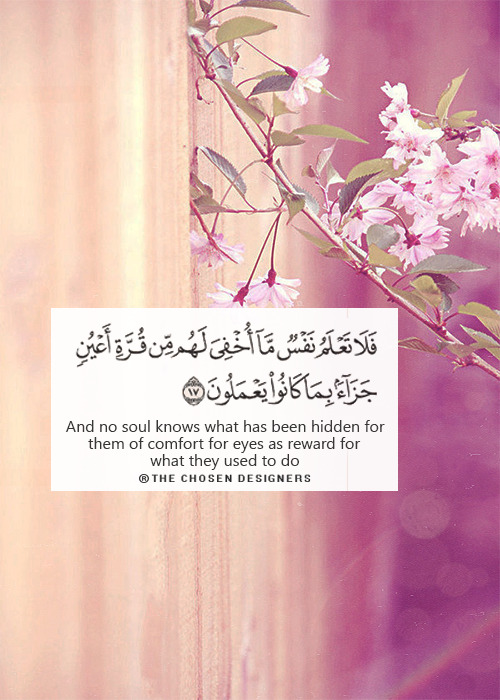 فَلَا تَعْلَمُ نَفْسٌ مَّآ أُخْفِىَ لَهُم مِّن قُرَّةِ أَعْيُنٍ
جَزَآءًۢ بِمَا كَانُوا۟ يَعْمَلُونَ ١٧
And no soul knows what has been hidden for
them of comfort for eyes as reward for
what they used to do
®THE CHOSEN DESIGNERS